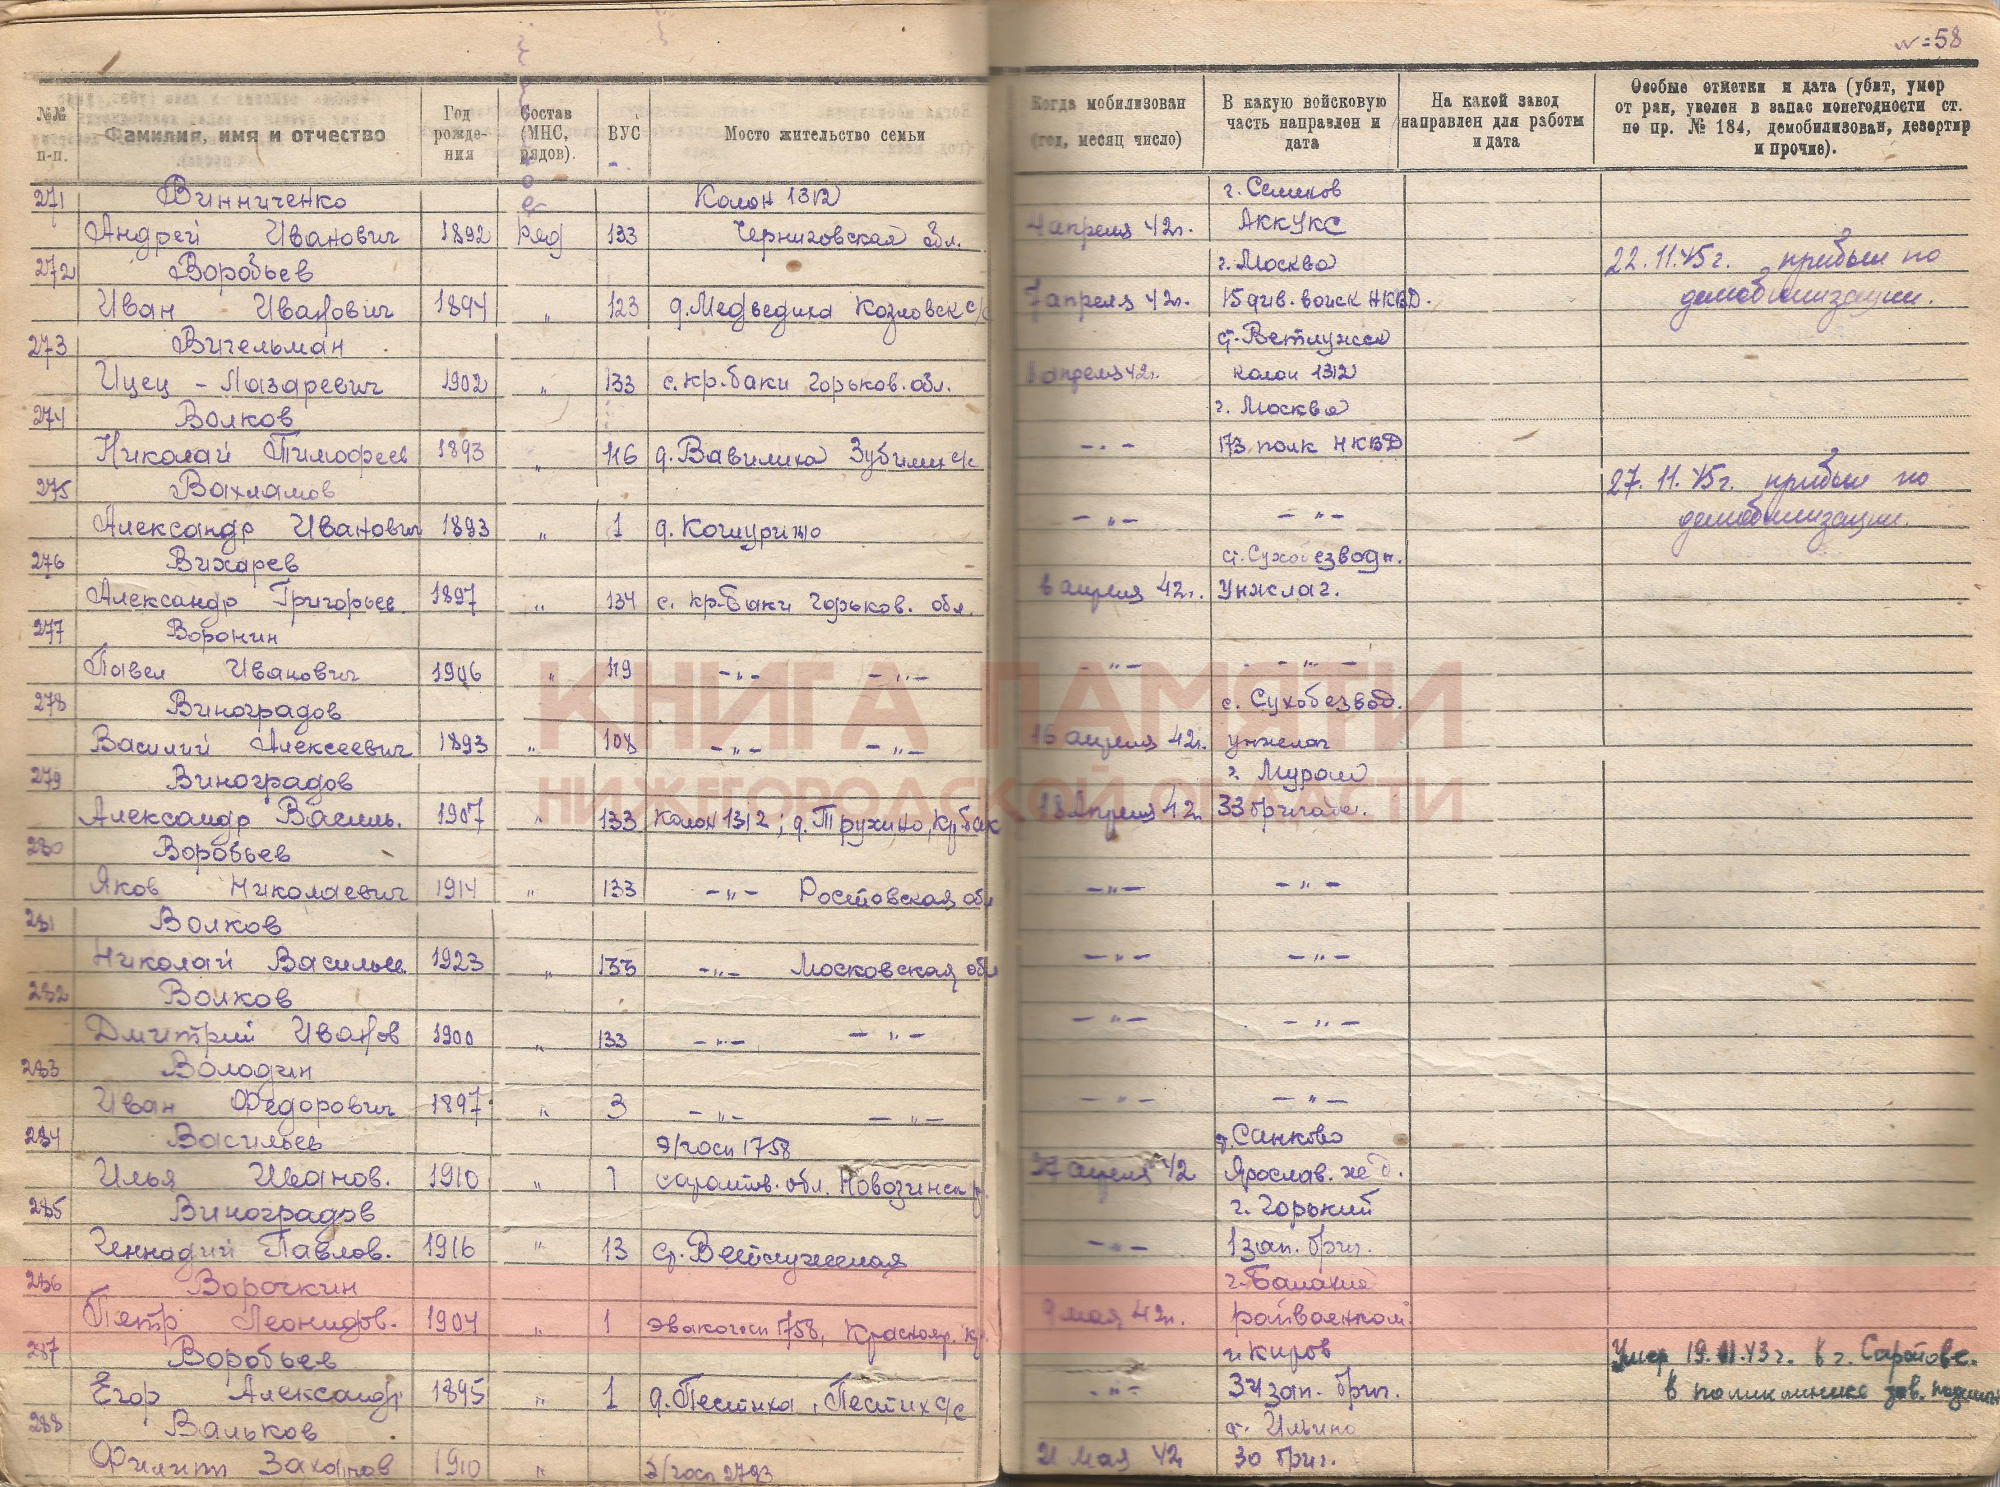 № = 58
№№ п-п.
Фамилия, имя и отчество
Год рожде-ния
Состав (МНС, рядов).
ВУС
Место жительство семьи
Когда мобилизован (год, месяц число)
В какую войсковую часть направлен и дата
На какой завод направлен для работы и дата
Особые отметки и дата (убит, умер от ран, уволен в запас по негодности ст. по пр. № 184, демобилизован, дезертир и прочие).
271 Винниченко Колон 1312 г. Семенов
Андрей Иванович 1892 ряд 133 Черниговская обл. 4 апреля 42г. АККУКС
272 Воробьев г. Москва 22.11.45г. прибыл по
Иван Иванович 1894 " 123 д. Медведиха Козловск с/с 7 апреля 42г. 15 див. войск НКВД. демобилизации.
273 Вигельман
Ицец - Лазаревич 1902 " 133 с. Кр. баки Горьков. обл. апреля 42г. колон 1312
274 Волков г. Москва
Николай Тимофеев 1893 " 116 д. Вавилиха Зубилих с/с - " - 173 полк НКВД
275 Вахламов 27.11.45г. прибыл по
Александр Иванович 1893 " 1 д. Кошурино - " - - " - демобилизации.
276 Вихарев ст. Сухобезводн.
Александр Григорьев. 1897 " 134 с. Кр-баки Горьков. обл. 6 апреля 42г. Унжлаг.
277 Воронин
Павел Иванович 1906 " 119 - " - - " - - " - - " -
278 Виноградов с. Сухобезвод.
Василий Алексеевич 1893 " 108 - " - - " - 16 апреля 42г. унжлаг
279 Виноградов г. Муром
Александр Василь. 1907 " 133 Колон 1312; д. Трухино, Кр. бак 18 Апреля 42г. 33 бригада.
280 Воробьев
Яков Николаевич 1914 " 133 - " - Ростовская обл - " - - " -
281 Волков
Николай Васильев. 1923 " 133 - " - Московская обл - " - - " -
282 Волков
Дмитрий Иванов 1900 " 133 - " - - " - - " - - " -
283 Володин
Иван Федорович 1897 " 3 - " - - " - - " - - " -
284 Васильев Э/госп 1758 ст. Санково
Илья Иванов. 1910 " 1 Саратов. обл. апреля 42 Ярослав. ж.д.
285 Виноградов г. Горький
Геннадий Павлов. 1916 " 13 ст. Ветлужская - " - 1 зап. бриг.
286 Ворочкин
Петр Леонидов. 1904 " 1 эвакогосп 1758, Краснояр. кр. 9 мая 42г. райвоенком
287 Воробьев г. Киров Умер 19.11.43г. в г. Саратове.
Егор Александр. 1895 " 1 д. Пестиха, Пестих с/с - " - 34 зап. бриг. в поликлинике зав.
288 Вальков ст. Ильино
Филипп Захаров 1910 " Э/госп 2793 21 мая 42 30 бриг.
КНИГА ПАМЯТИ
НИЖЕГОРОДСКОЙ ОБЛАСТИ